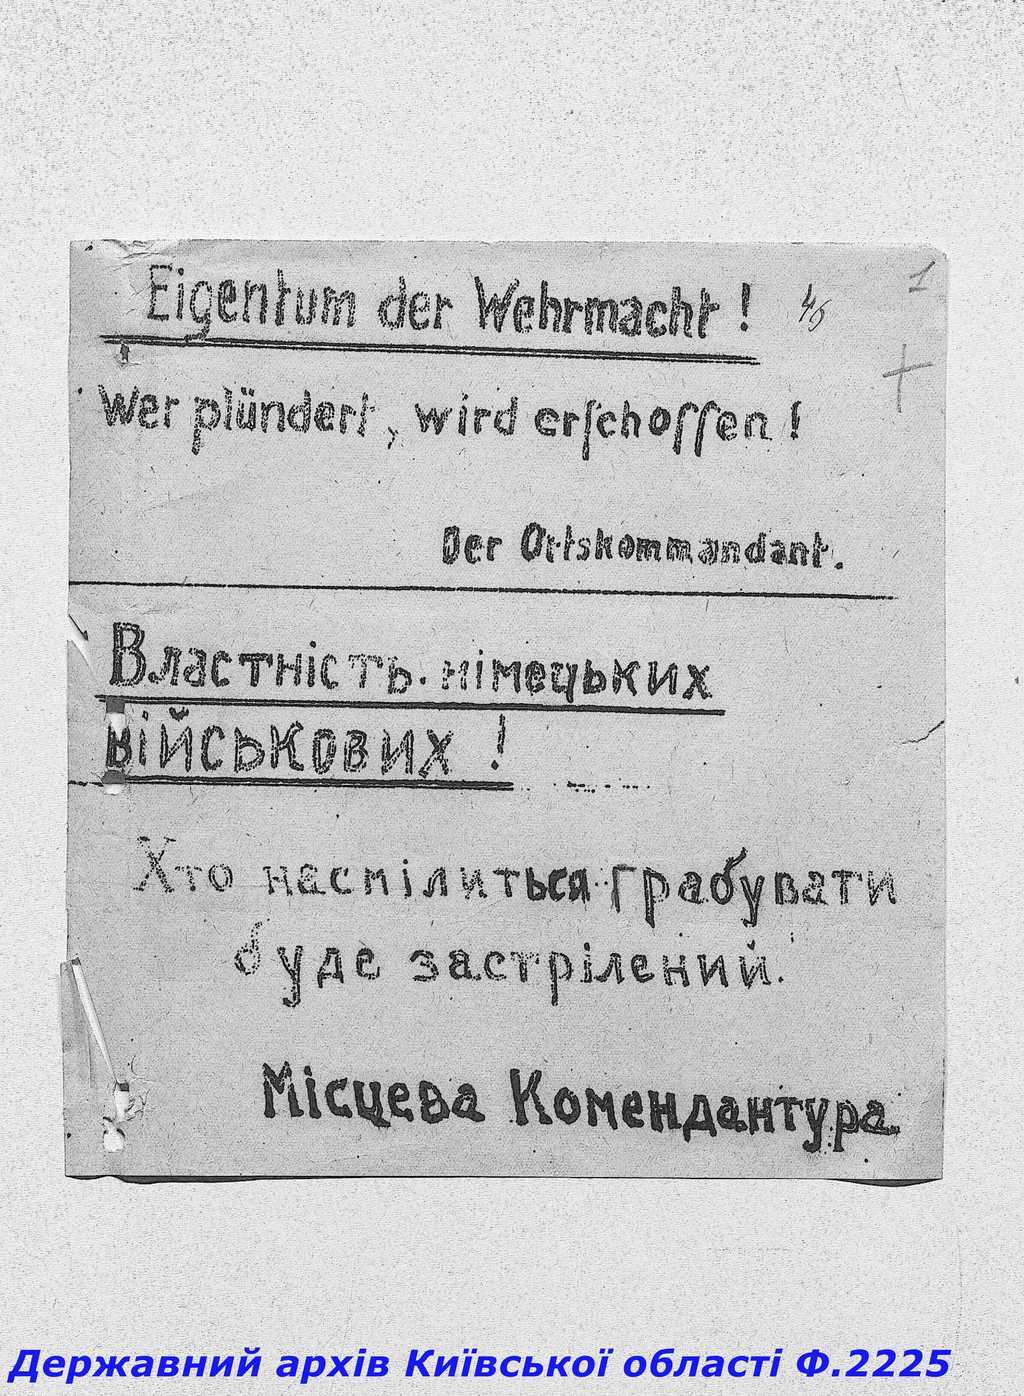 1
Eigentum der Wehrmacht!
Wer plündert, wird erſchoſſen!
Der Ortskommandant.
Властність німецьких
військових!
Хто насмілиться грабувати
буде застрілений.
Місцева Комендантура
Державний архів Київської області Ф.2225